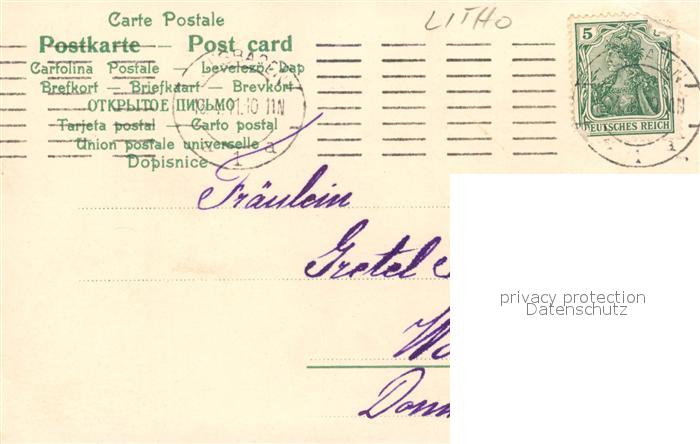 Carte Postale
Postkarte — Post card
Cartolina Postale — Levelező-Lap
Brefkort — Briefkaart — Brevkort
ОТКРЫТОЕ ПИСЬМО
Tarjeta postal — Carto postal
Union postale universelle
Dopisnice
LITHO
5
DEUTSCHES REICH
1 a
1 a
Fräulein
Gretel
privacy protection
Datenschutz